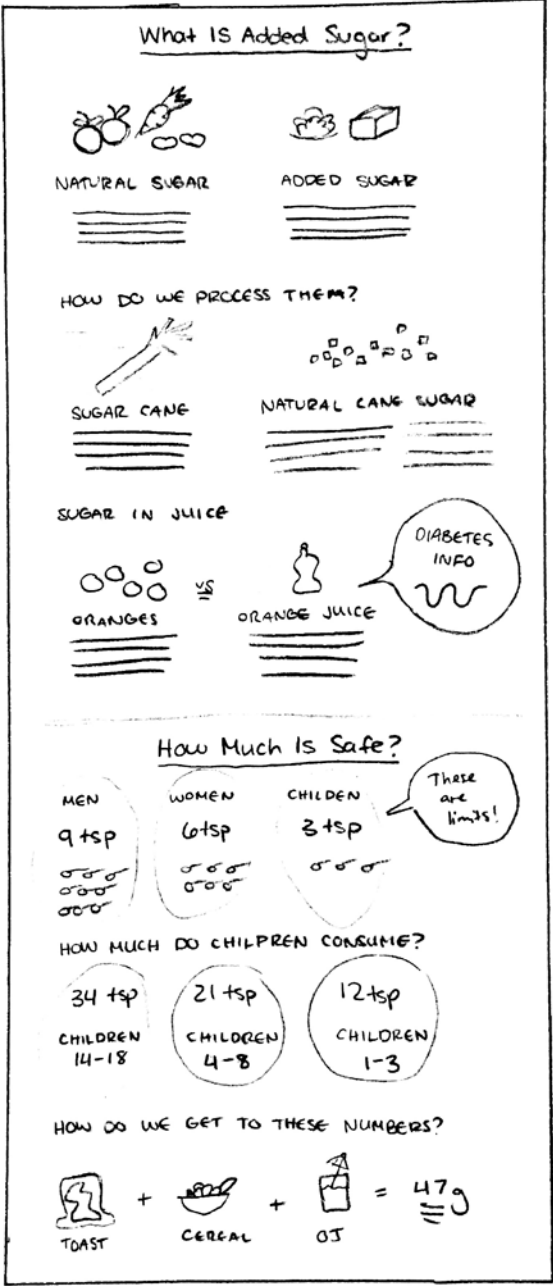 What Is Added Sugar?
NATURAL SUGAR
ADDED SUGAR
HOW DO WE PROCESS THEM?
SUGAR CANE
NATURAL CANE SUGAR
SUGAR IN JUICE
DIABETES
INFO
VS
ORANGES
ORANGE JUICE
How Much Is Safe?
MEN
9 tsp
WOMEN
6 tsp
CHILDEN
3 tsp
These
are
limits!
HOW MUCH DO CHILDREN CONSUME?
34 tsp
CHILDREN
14-18
21 tsp
CHILDREN
4-8
12 tsp
CHILDREN
1-3
HOW DO WE GET TO THESE NUMBERS?
+ + = 47g
TOAST
CEREAL
OJ